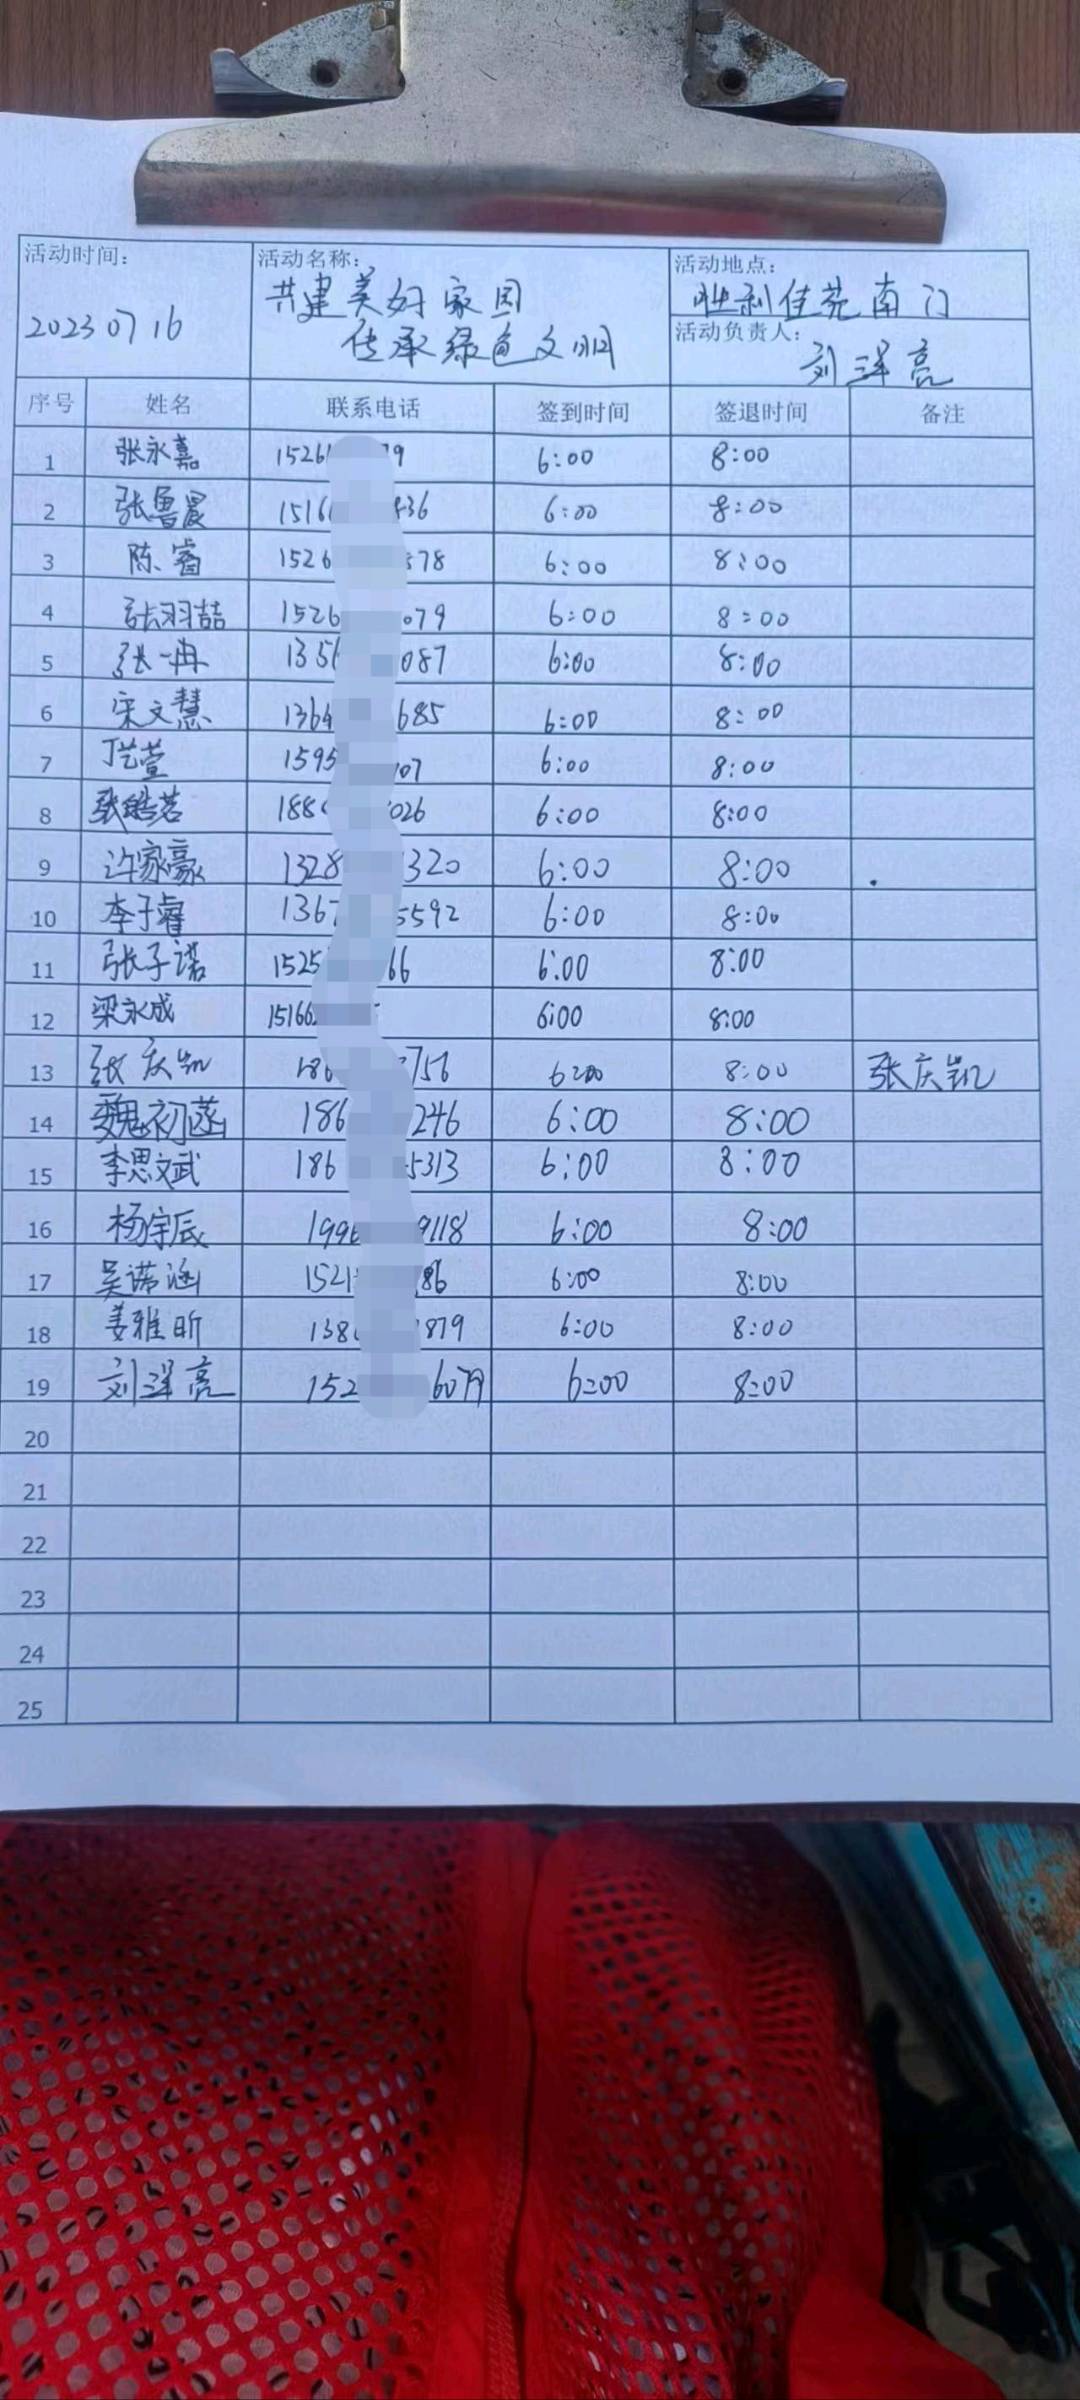 活动时间： 活动名称： 活动地点：
20230716 共建美好家园 胜利佳苑南门
传承绿色文明 活动负责人：
刘泽亮
序号 姓名 联系电话 签到时间 签退时间 备注
1 张永嘉 1526 79 6:00 8:00
2 张鲁晨 1516 436 6:00 8:00
3 陈睿 1526 878 6:00 8:00
4 张羽喆 1526 079 6:00 8:00
5 张一冉 1356 087 6:00 8:00
6 宋文慧 1364 685 6:00 8:00
7 丁艺萱 1595 07 6:00 8:00
8 张皓茗 188 026 6:00 8:00
9 许家豪 1328 1320 6:00 8:00
10 李子睿 136 5592 6:00 8:00
11 张子诺 1525 66 6:00 8:00
12 梁永成 15166 6:00 8:00
13 张庆凯 186 756 6:00 8:00 张庆凯
14 魏初菡 186 246 6:00 8:00
15 李思文武 186 5313 6:00 8:00
16 杨宇辰 199 9118 6:00 8:00
17 吴诺涵 1521 86 6:00 8:00
18 姜雅昕 138 879 6:00 8:00
19 刘泽亮 152 6:00 8:00
20
21
22
23
24
25